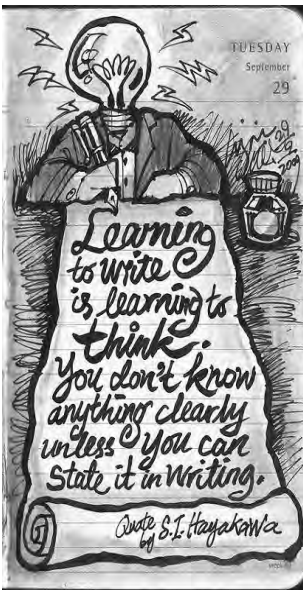 TUESDAY
September
29
Learning
to write
is learning to
think.
You don't know
anything clearly
unless you can
state it in writing.
Quote
by S.I. Hayakawa